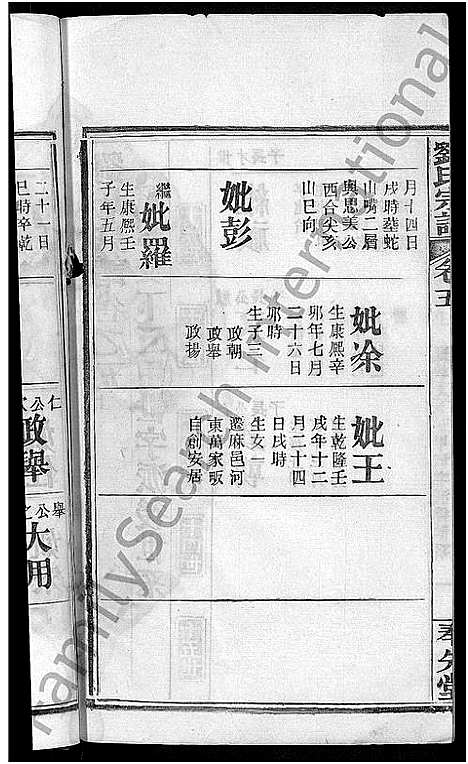 劉氏宗譜
卷五
月十四日
戌時塟蛇
山嘴二層
與思美公
西合尖亥
山巳向
妣彭
繼
妣羅
生康熙壬
子年五月
妣凃
生康熙辛
卯年七月
二十六日
卯時
生子三
政朝
政舉
政揚
妣王
生乾隆壬
戌年十二
月二十四
日戌時
生女一
遷麻邑河
東萬家畈
自創安居
二十一日
巳時卒乾
仁公
政舉
舉公
大用
FamilySearch International